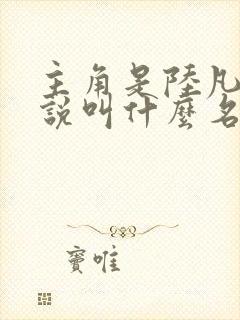 主角是陸凡
說叫什麼名
竇唯